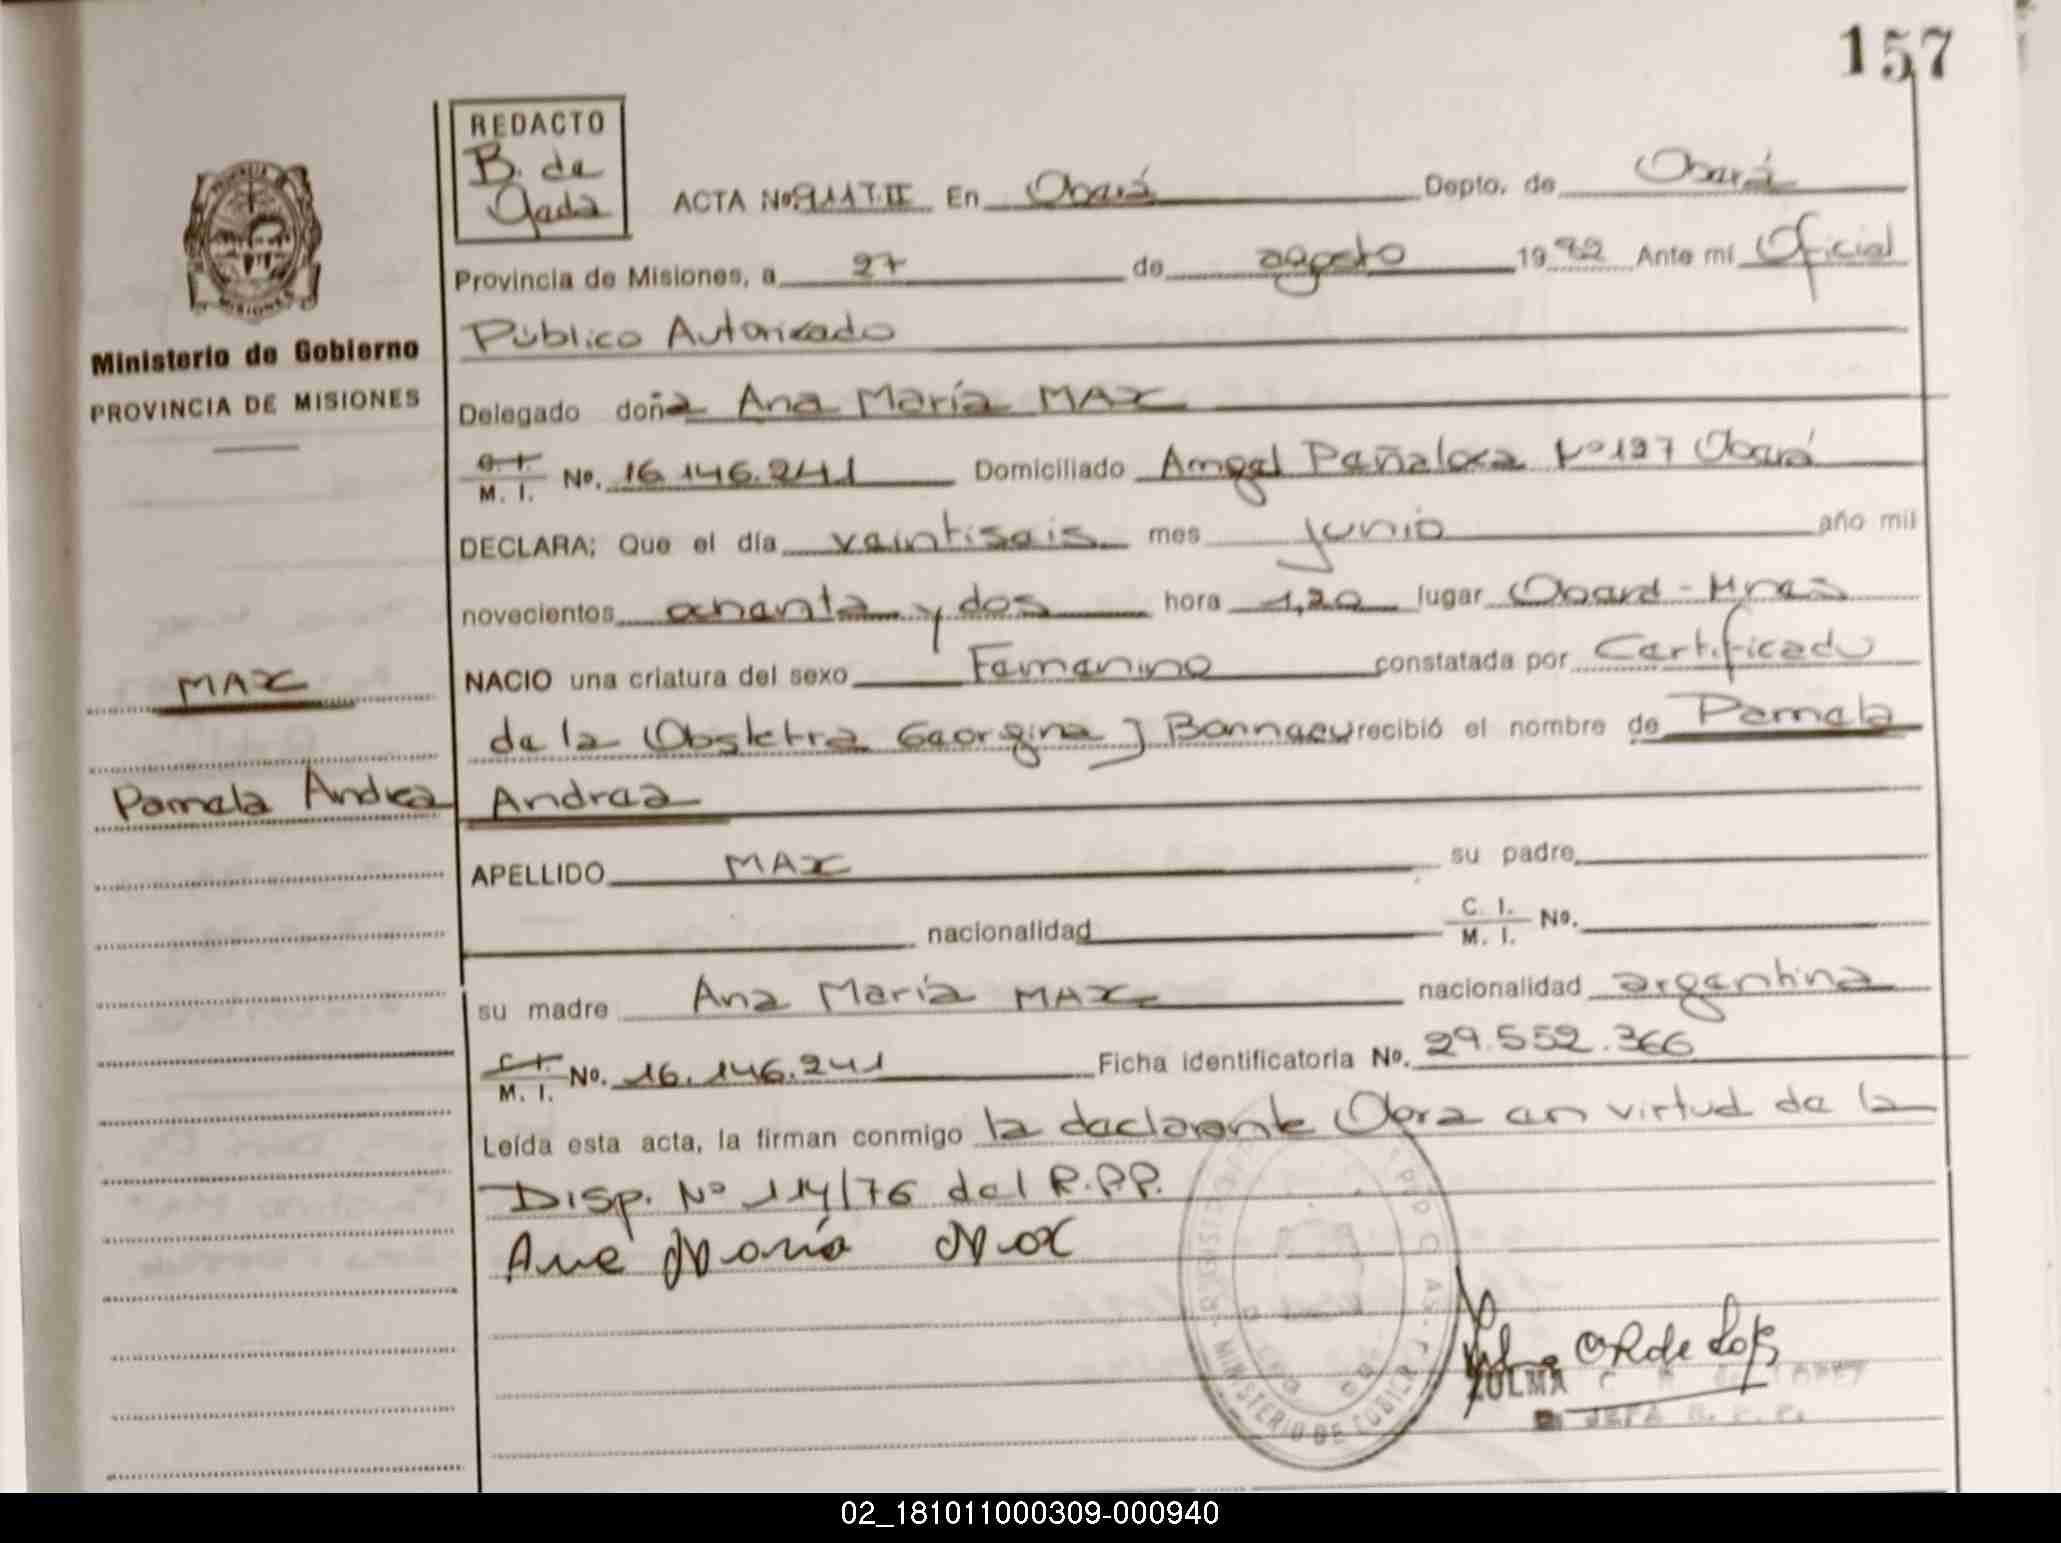 157
REDACTO
B. de
Gada
ACTA Nº 911 T.II En Oberá Depto. de Oberá
Provincia de Misiones, a 27 de agosto 1982 Ante mí Oficial
Público Autorizado
Ministerio de Gobierno
PROVINCIA DE MISIONES
Delegado doña Ana María MAX
M. I. Nº. 16.146.241 Domiciliado Angel Peñaloza Nº 197 Oberá
DECLARA: Que el día veintiseis mes junio año mil
novecientos ochenta y dos hora 1,20 lugar Oberá - Mnes
NACIO una criatura del sexo Femenino constatada por Certificado
MAX
de la Obstetra Georgina J recibió el nombre de Pamela
Pamela Andrea Andrea
APELLIDO MAX su padre
nacionalidad C. I. / M. I. Nº.
su madre Ana María MAX nacionalidad argentina
C. I. / M. I. Nº. 16.146.241 Ficha identificatoria Nº. 29.552.366
Leída esta acta, la firman conmigo la declarante Obra en virtud de la
Disp. Nº 114/76 del R.P.P.
Ana María Max
MINISTERIO DE GOBIER
ZULMA
JEFA R. P. P.
02_181011000309-000940